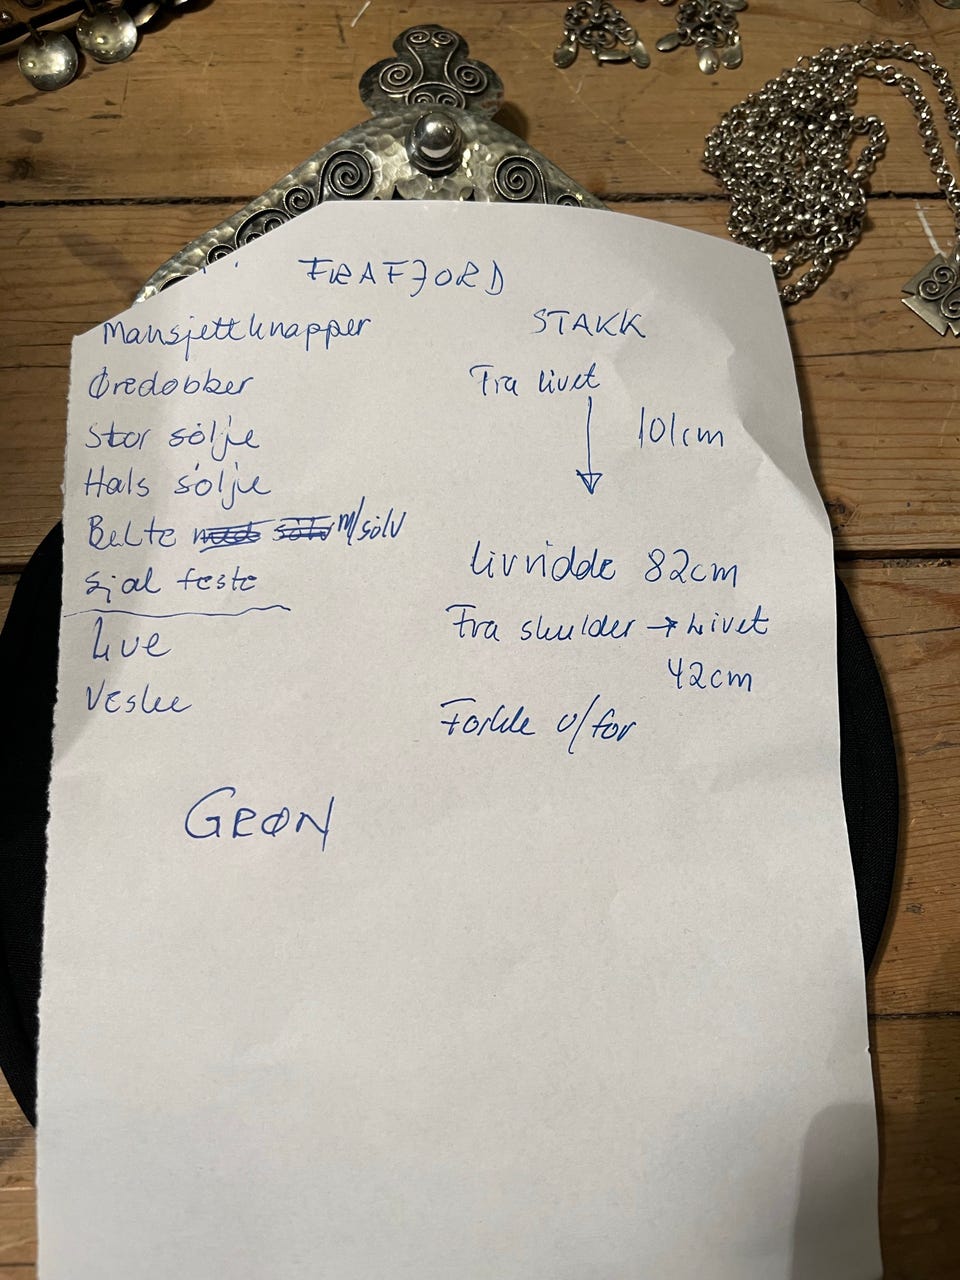 FRAFJORD
Mansjettknapper
Øredobber
Stor sölje
Hals sölje
Belte m/sölv
Sjal feste
Lue
Veske
GRØN
STAKK
Fra livet
101cm
Livvidde 82cm
Fra skulder → Livet
42cm
Forkle u/for